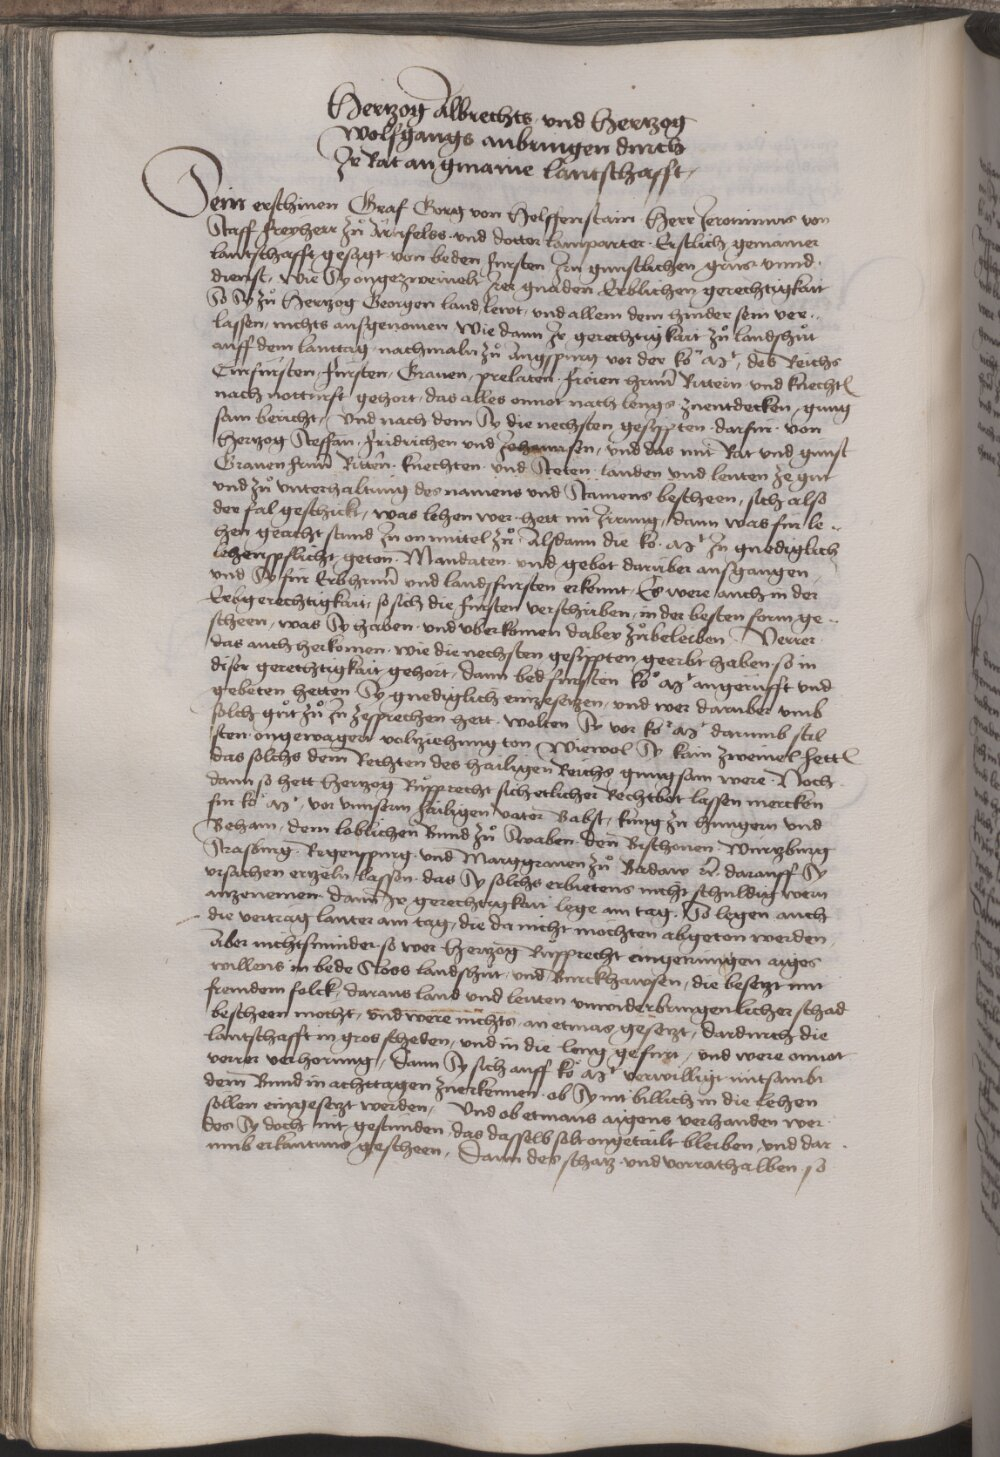 Hertzog Albrechts und Hertzog
Wolfgangs anbringen durch
Ir Rat an gmaine lantschafft
Sein erschinen Graf Gorg von Helffenstain Herr Jeronimus von
Staff freyherr zů Ernfelss und doctor lamparter Erstlich gemainer
lantschafft gesagt von beden fursten Irn gunstlichen grus unnd
dienst, wie Sy ongezweiuelt Irer gnaden Erblichen gerechtigkait
So Sy zů Hertzog Georgen land lewt, und allem dem hinder sein ver..
lassen, nichts ausgenomen Wie dann Ir gerechtigkait zů landshůt
auff dem lanttag nachmaln zů Augspurg vor der ko. Mt, des Reichs
Curfursten, fursten, Grauen, prelaten freien herrn Rittern und knechtl
nach notturft gehort, das alles onnot nach lengs zuentdecken, gnug
sam bericht, Und nach dem Sy die nechsten gesippten darfur von
Hertzog Steffan, fridrichen und Johannsen, und das mit Rat und gunst
Grauen herrn Rittern knechten und Steten landen und leuten ze gut
und zů unterhaltung des namens und Stamens bescheen, sich also
der fal geschickt, was lehen wer hett nit Irrung, dann was fur le..
hen geacht stund In on mittel zů Alsdann die ko. Mt In gnediglich
lehenspflicht geton Mandaten und gebot daruber ausgangen,
und Sy fur Erbherrn und landfursten erkennt, Es were auch in der
Erbgerechtigkait, so sich die fursten verschriben, in der besten form ge..
scheen, was Sy haben und uberkomen dabey zůbeleiben Verrer
das auch herkomen wie die nechsten gesippten geerbt haben so in
diser gerechtigkait gehort, dann bed fursten ko. Mt angerufft und
gebeten hetten Sy gnediglich einzesetzen, und wer daruber umb
solch gůt zů In zesprechen hett wolten Sy vor ko. Mt darumb stil
sten ongewagert volziehung ton Wiewol Sy kain zweiuel hettl
das solchs dem Rechten des hailigen Reichs gnugsam were Noch
dann so hett Hertzog Růpprecht sich etlicher Rechtbot lassen mercken
fur ko. Mt, vor unnserm hailigen vater Babst, kung zu hungern und
Beham, dem loblichen Bund zů Swaben den Bischouen Wirtzburg
Strasburg Regenspurg und Marggrauen zů Badaw darauff Sy
ursachen erzeln lassen das Sy solchs erbietens nicht schuldig wern
anzenemen dann Ir gerechtigkait lege am tag So legen auch
die vertrag lauter am tag, die da nicht mochten abgeton werden,
Aber nichtsminder so wer Hertzog Růpprecht eingerungen aigens
willens in bede Sloss landshut und Burckhawsen, die besetzt mit
fremdem folck, daraus land und leuten unwiderbringenlicher schad
bescheen mocht, und were nichts an etwas gesetzt, dardurch die
lantschafft in gros scheden, und in die leng gefurt, und were onnot
verrer verhorung, Dann Sy sich auff ko. Mt verwilligt mitsambt
dem Bund in achttagen zuerkennen ob Sy nit billich in die lehen
sollen eingesetzt werden, Und ob etwas aigens verhanden wer
des Sy doch nit gestunden das dasselb solt ongetailt bleiben, und dar
umb erkantnus gescheen, Dann des schatz und vorrats halben so